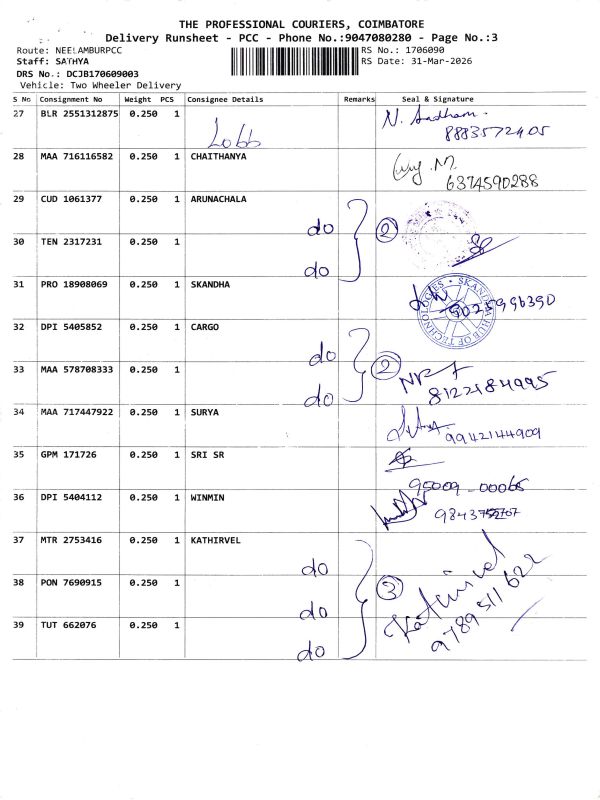 THE PROFESSIONAL COURIERS, COIMBATORE
Delivery Runsheet - PCC - Phone No.:9047080280 - Page No.:3
Route: NEELAMBURPCC RS No.: 1706090
Staff: SATHYA RS Date: 31-Mar-2026
DRS No.: DCJB170609003
Vehicle: Two Wheeler Delivery
S No Consignment No Weight PCS Consignee Details Remarks Seal & Signature
27 BLR 2551312875 0.250 1
8883572405
28 MAA 716116582 0.250 1 CHAITHANYA
6374590288
29 CUD 1061377 0.250 1 ARUNACHALA
do 2
30 TEN 2317231 0.250 1
do
31 PRO 18908069 0.250 1 SKANDHA
SKANDHA HUB OF TECHNOLOGIES
9025996390
32 DPI 5405852 0.250 1 CARGO
do 2
33 MAA 578708333 0.250 1
do 8122184995
34 MAA 717447922 0.250 1 SURYA
9942144909
35 GPM 171726 0.250 1 SRI SR
95009-00065
36 DPI 5404112 0.250 1 WINMIN
37 MTR 2753416 0.250 1 KATHIRVEL
do
38 PON 7690915 0.250 1 3
do Kathirvel
39 TUT 662076 0.250 1 9789511622
do